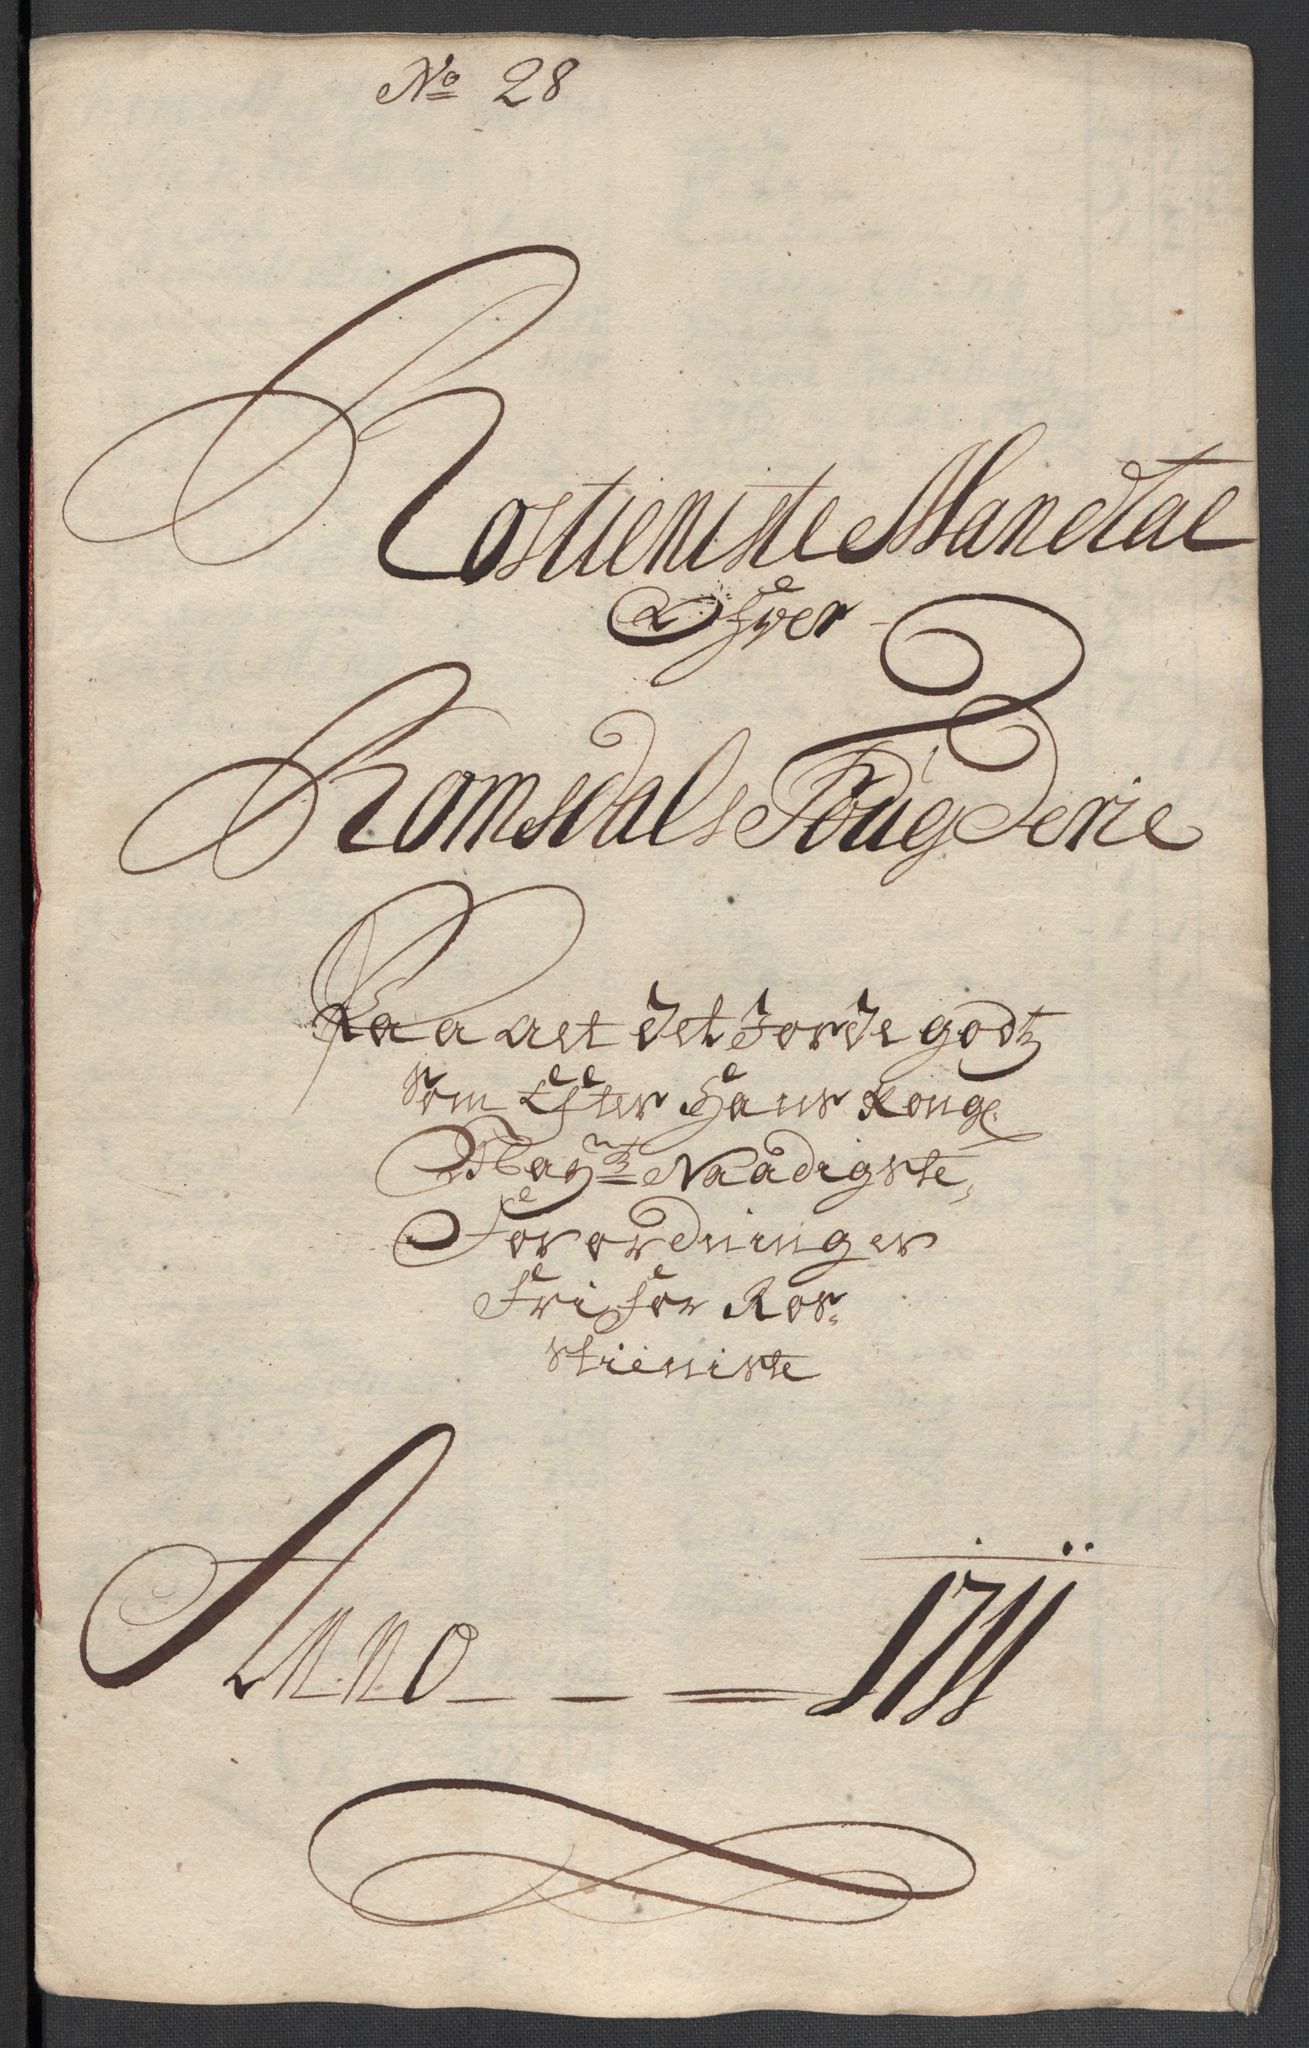 No 28
Rostieniste Mandtal
Ofver
Romsdals Fougderie
Paa alt det Jorde godtz
som Efter Hans Kongl.
May.tz Naadigste
Forordninger
Fri for Ros-
stieniste
Anno 1711